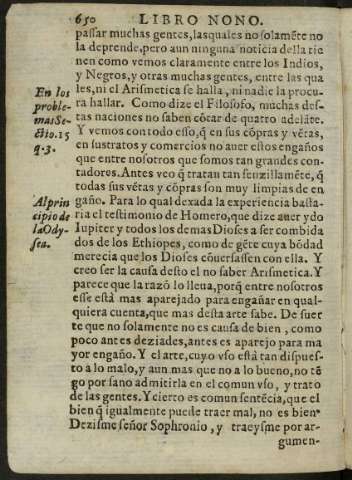 650 LIBRO NONO.
passar muchas gentes, lasquales no solamẽte no
la deprende, pero aun ninguna noticia della tie
nen como vemos claramente entre los Indios,
y Negros, y otras muchas gentes, entre las qua
les, ni el Arismetica se halla, ni nadie la procu
ra hallar. Como dize el Filosofo, muchas des-
tas naciones no saben cõtar de quatro adelãte.
Y vemos con todo esso, q̃ en sus cõpras y vẽtas,
en sustratos y comercios no auer estos engaños
que entre nosotros que somos tan grandes con-
tadores. Antes veo q̃ tratan tan senzillamẽte, q̃
todas sus vẽtas y cõpras son muy limpias de en
gaño. Para lo qual dexada la experiencia basta-
ria el testimonio de Homero, que dize auer ydo
Iupiter y todos los demas Dioses a ser combida
dos de los Ethiopes, como de gẽte cuya bõdad
merecia que los Dioses cõuersassen con ella. Y
creo ser la causa desto el no saber Arismetica. Y
parece que la razõ lo lleua, porq̃ entre nosotros
esse està mas aparejado para engañar en qual-
quiera cuenta, que mas desta arte sabe. De suer
te que no solamente no es causa de bien, como
poco antes deziades, antes es aparejo para ma
yor engaño. Y el arte, cuyo vso està tan dispues-
to a lo malo, y aun mas que no a lo bueno, no tẽ
go por sano admitirla en el comun vso, y trato
de las gentes. Y cierto es comun sentẽcia, que el
bien q̃ igualmente puede traer mal, no es bien.
Dezisme señor Sophronio, y traeysme por ar-
gumen-
En los
proble-
mas Se-
ctio. 15
q. 3.
Al prin
cipio de
la Ody-
sea.